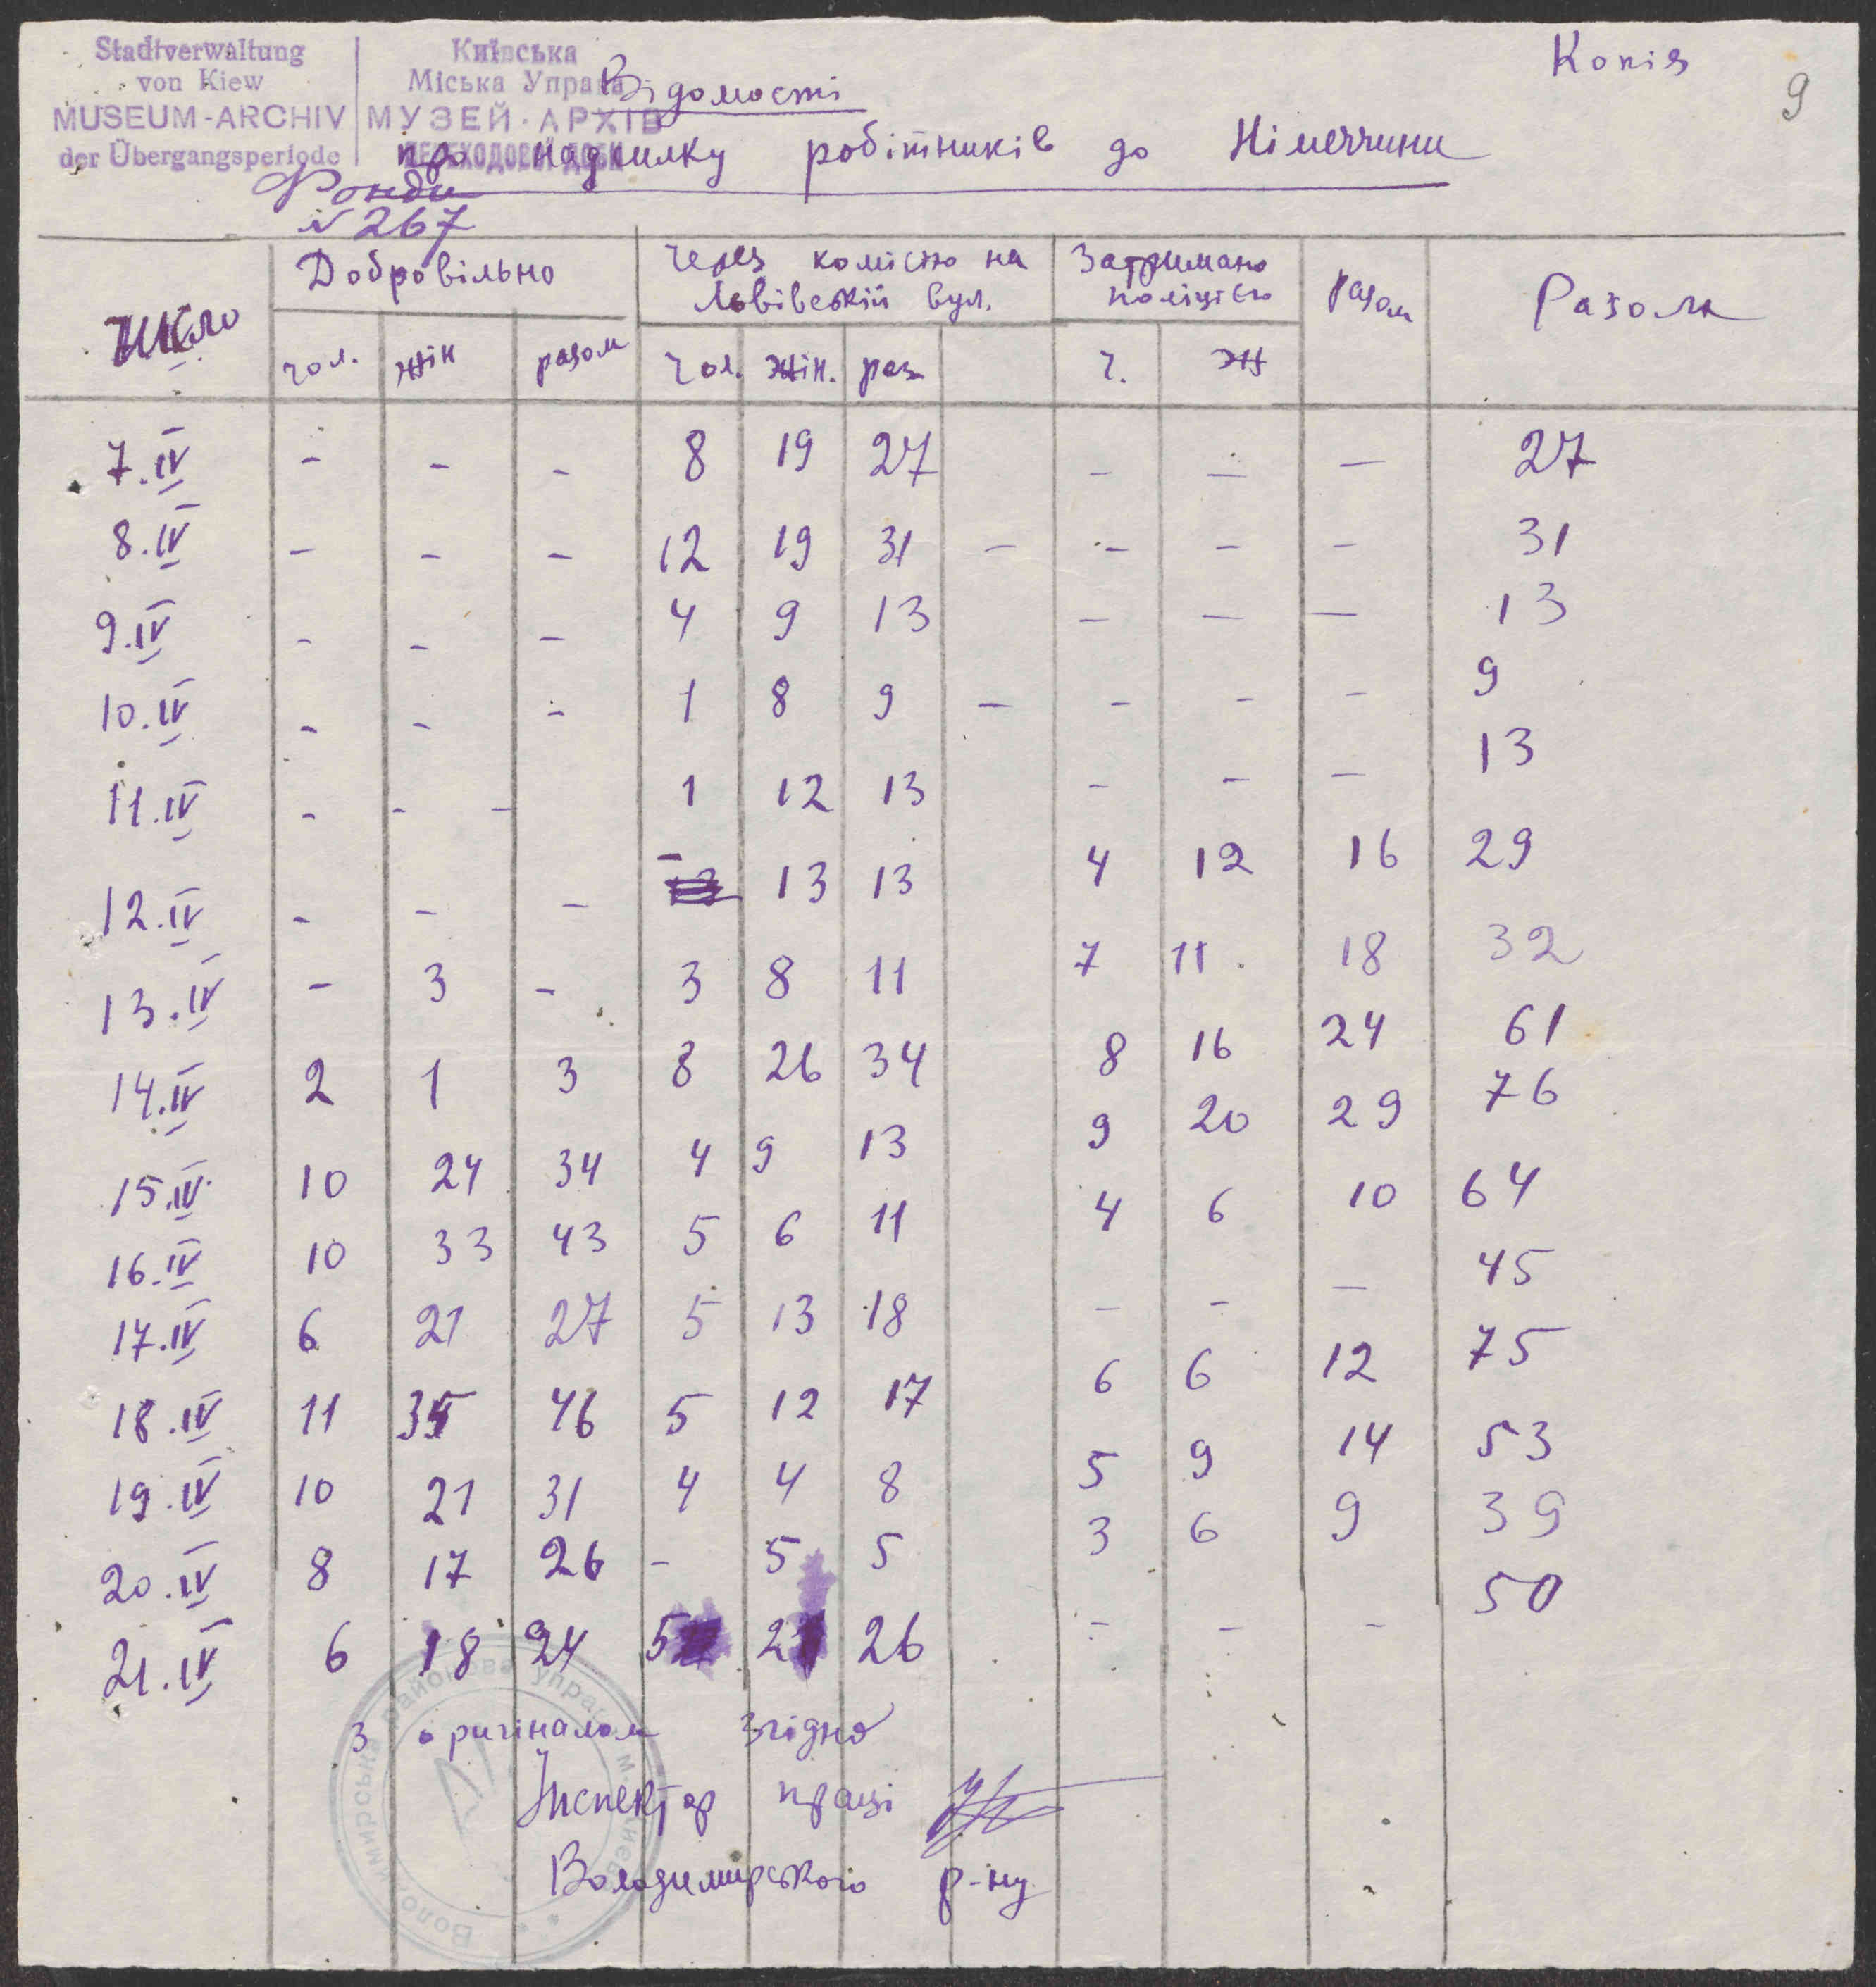 Stadtverwaltung
von Kiew
MUSEUM-ARCHIV
der Übergangsperiode
Київська
Міська Управа
МУЗЕЙ-АРХІВ
ПЕРЕХОДОВОЇ ДОБИ
Копія
9
Відомості
про надсилку робітників до Німеччини
Фонди
№ 267
Число Добровільно Через комісію на Львівській вул. Затримано поліцією разом Разом
чол. жін разом чол. жін. раз ч. ж
7.IV - - - 8 19 27 - - - 27
8.IV - - - 12 19 31 - - - - 31
9.IV - - - 4 9 13 - - - 13
10.IV - - - 1 8 9 - - - - 9
11.IV - - - 1 12 13 - - - 13
12.IV - - - - 13 13 4 12 16 29
13.IV - 3 - 3 8 11 7 11 18 32
14.IV 2 1 3 8 26 34 8 16 24 61
15.IV 10 24 34 4 9 13 9 20 29 76
16.IV 10 33 43 5 6 11 4 6 10 64
17.IV 6 21 27 5 13 18 - - - 45
18.IV 11 35 46 5 12 17 6 6 12 75
19.IV 10 21 31 4 4 8 5 9 14 53
20.IV 8 17 26 - 5 5 3 6 9 39
21.IV 6 18 24 5 21 26 - - - 50
З оригіналом згідно
Інспектор праці
Володимирського р-ну